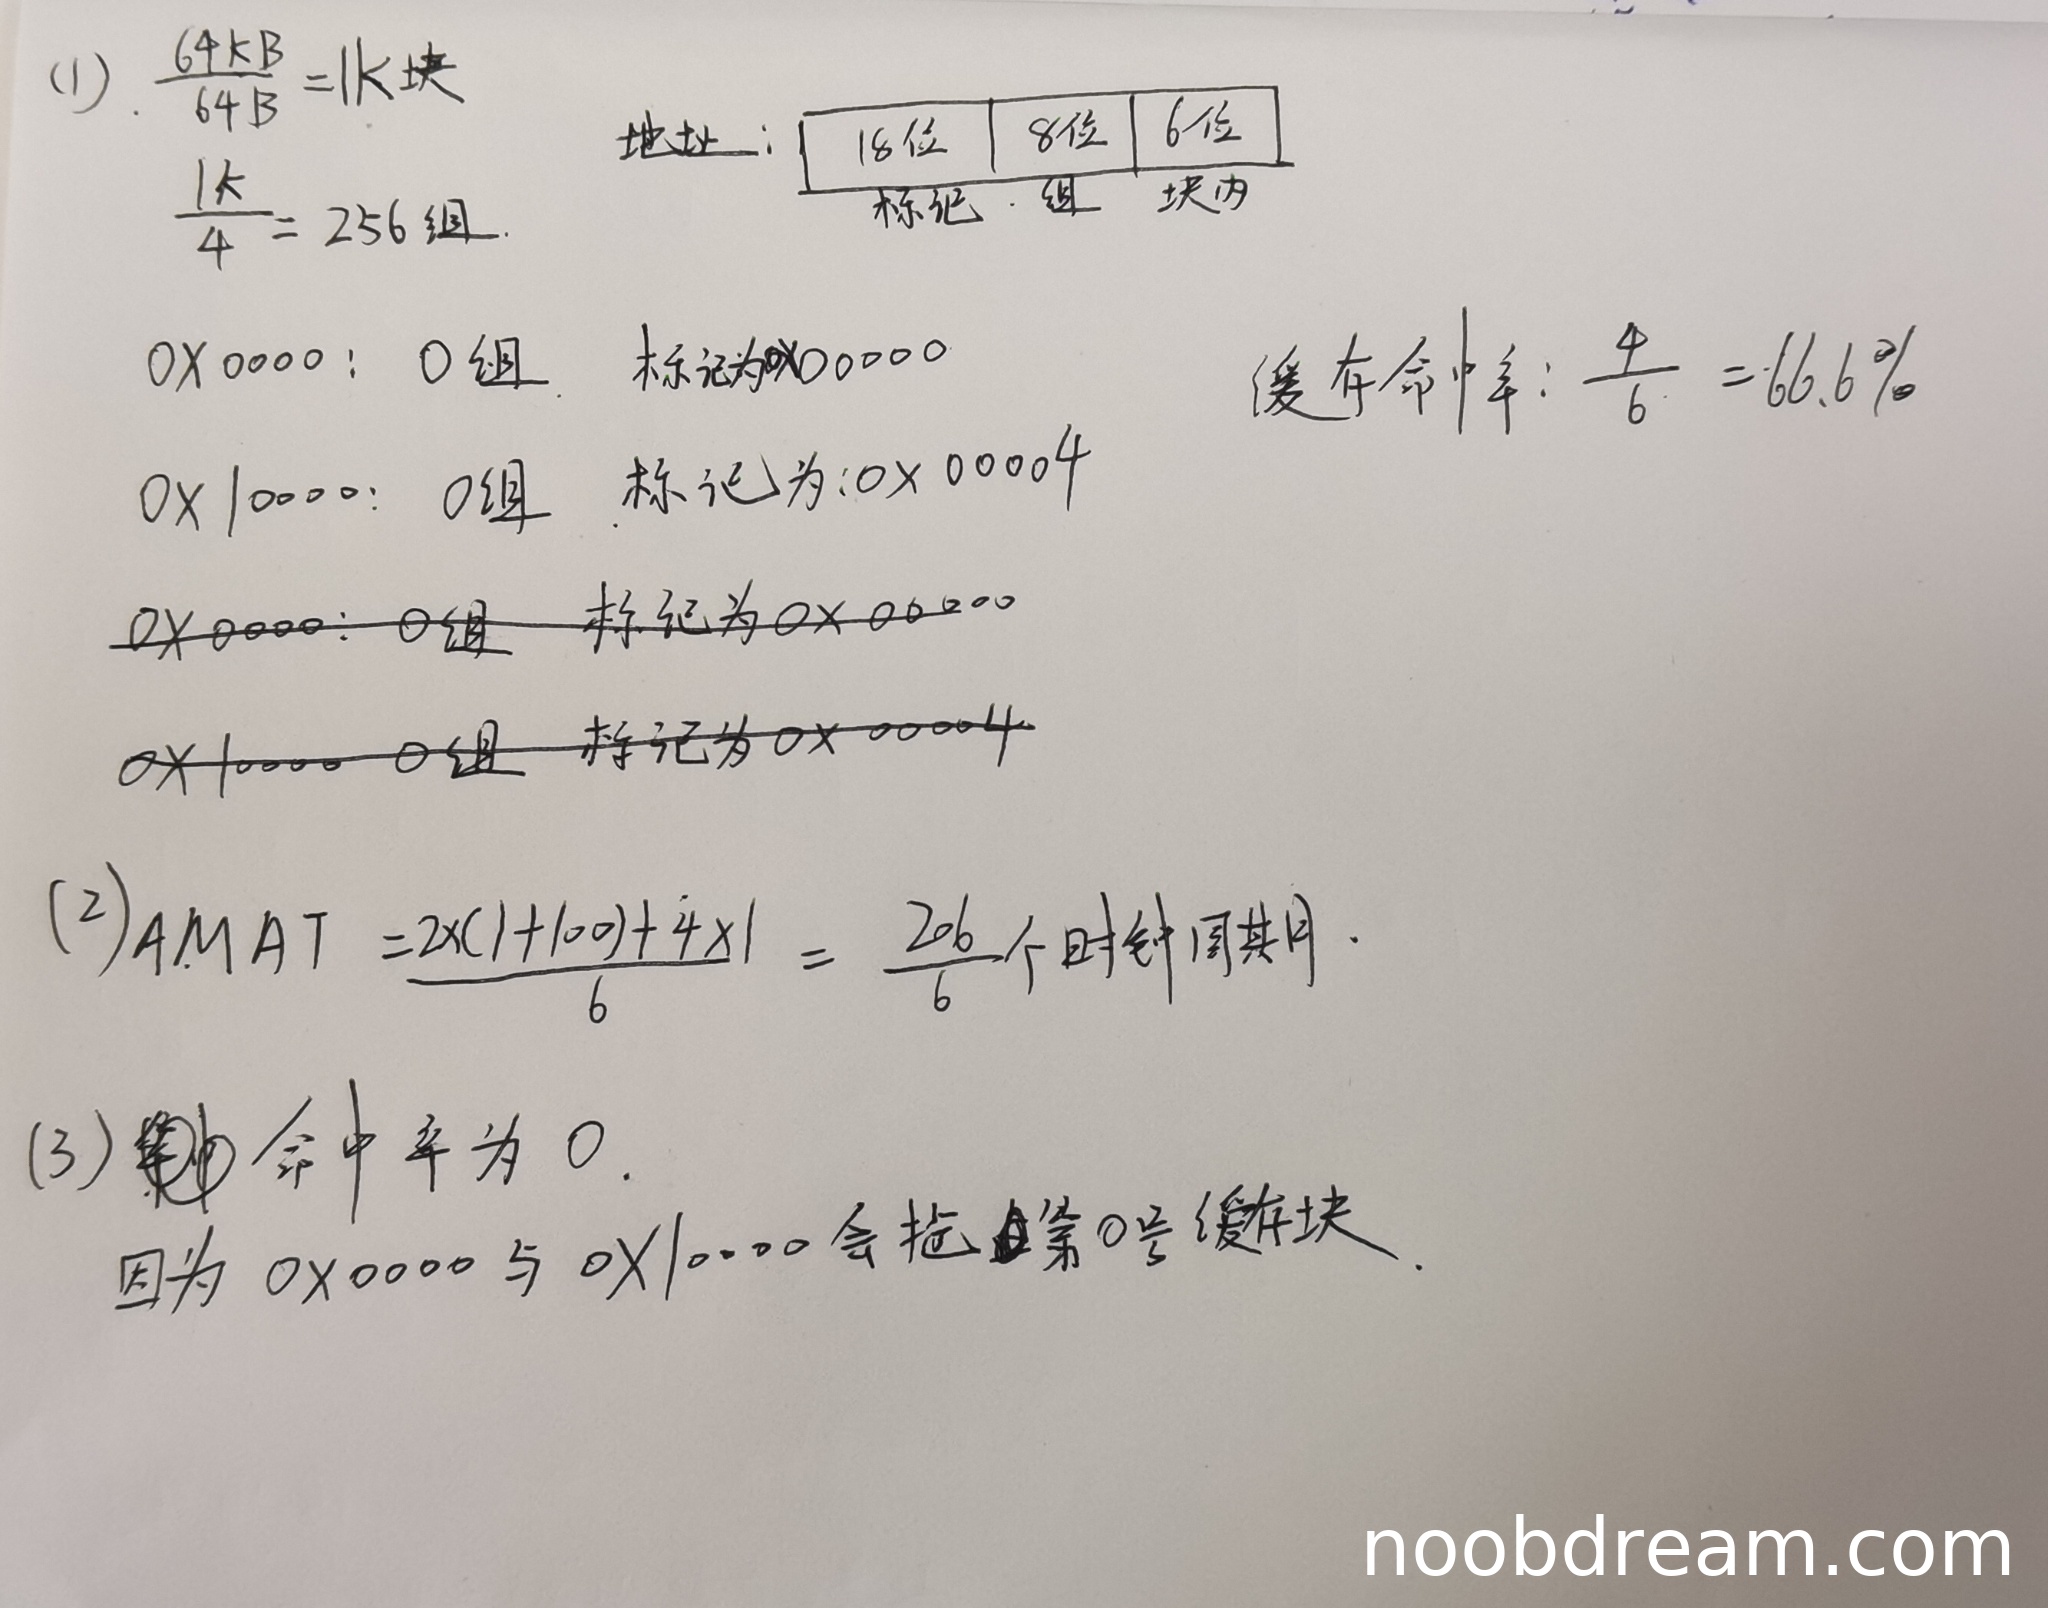 (1). 64KB/64B = 1K块
1K/4 = 256组.
地址: 18位 8位 6位
标记 · 组 块内
0X0000: 0组. 标记为0X00000
0X10000: 0组. 标记为:0X00004
缓存命中率: 4/6 = 66.6%
0X0000: 0组 标记为0X00000
0X10000 0组 标记为0X00004
(2) AMAT = 2x(1+100)+4x1/6 = 206/6 个时钟周期.
(3) 命中率为0.
因为0X0000与0X10000会抢 第0号缓存块.
noobdream.com